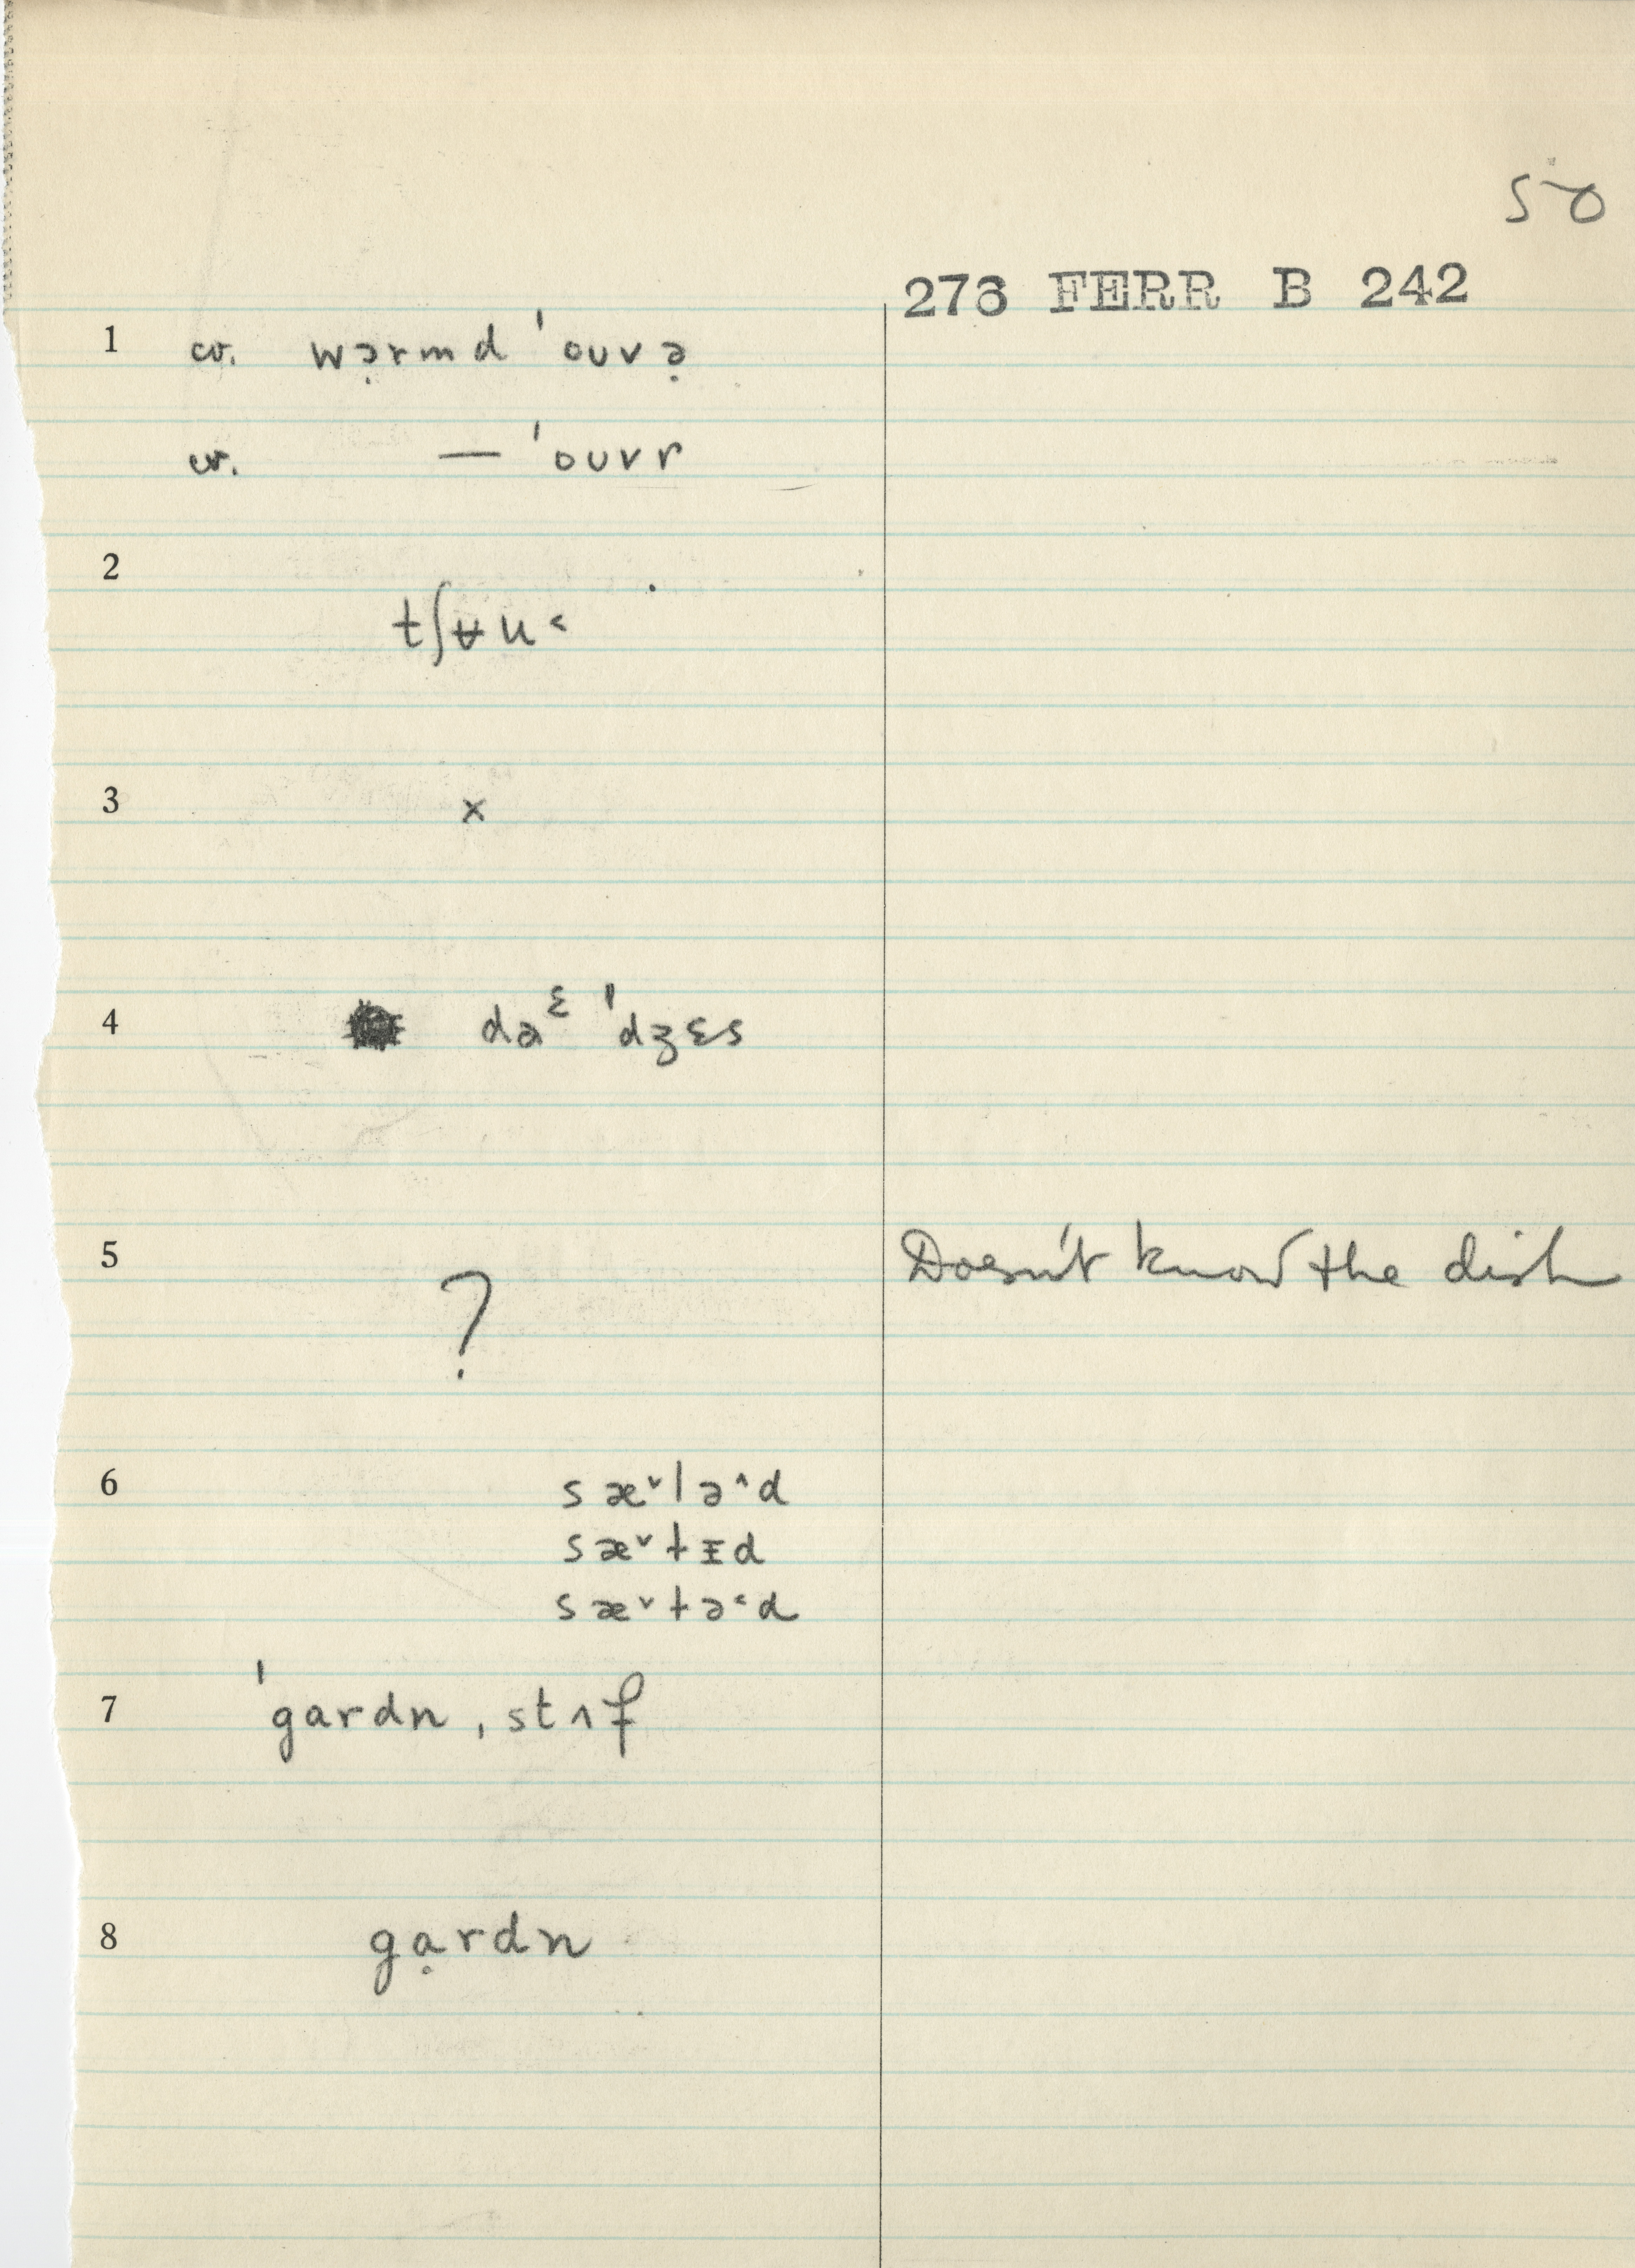 50
276 FERR B 242
1 cv. wə̣rmd ˈouvə̣
cv. — ˈouvr
2
tʃʉu˂
3 ×
4 da^ɛ ˈdʒɛs
5 ? Doesn't know the dish
6 sæ˅lə˄d
sæ˅ɫɪd
sæ˅ɫə˂d
7 ˈgardn ˌstʌf
8 gạrdn